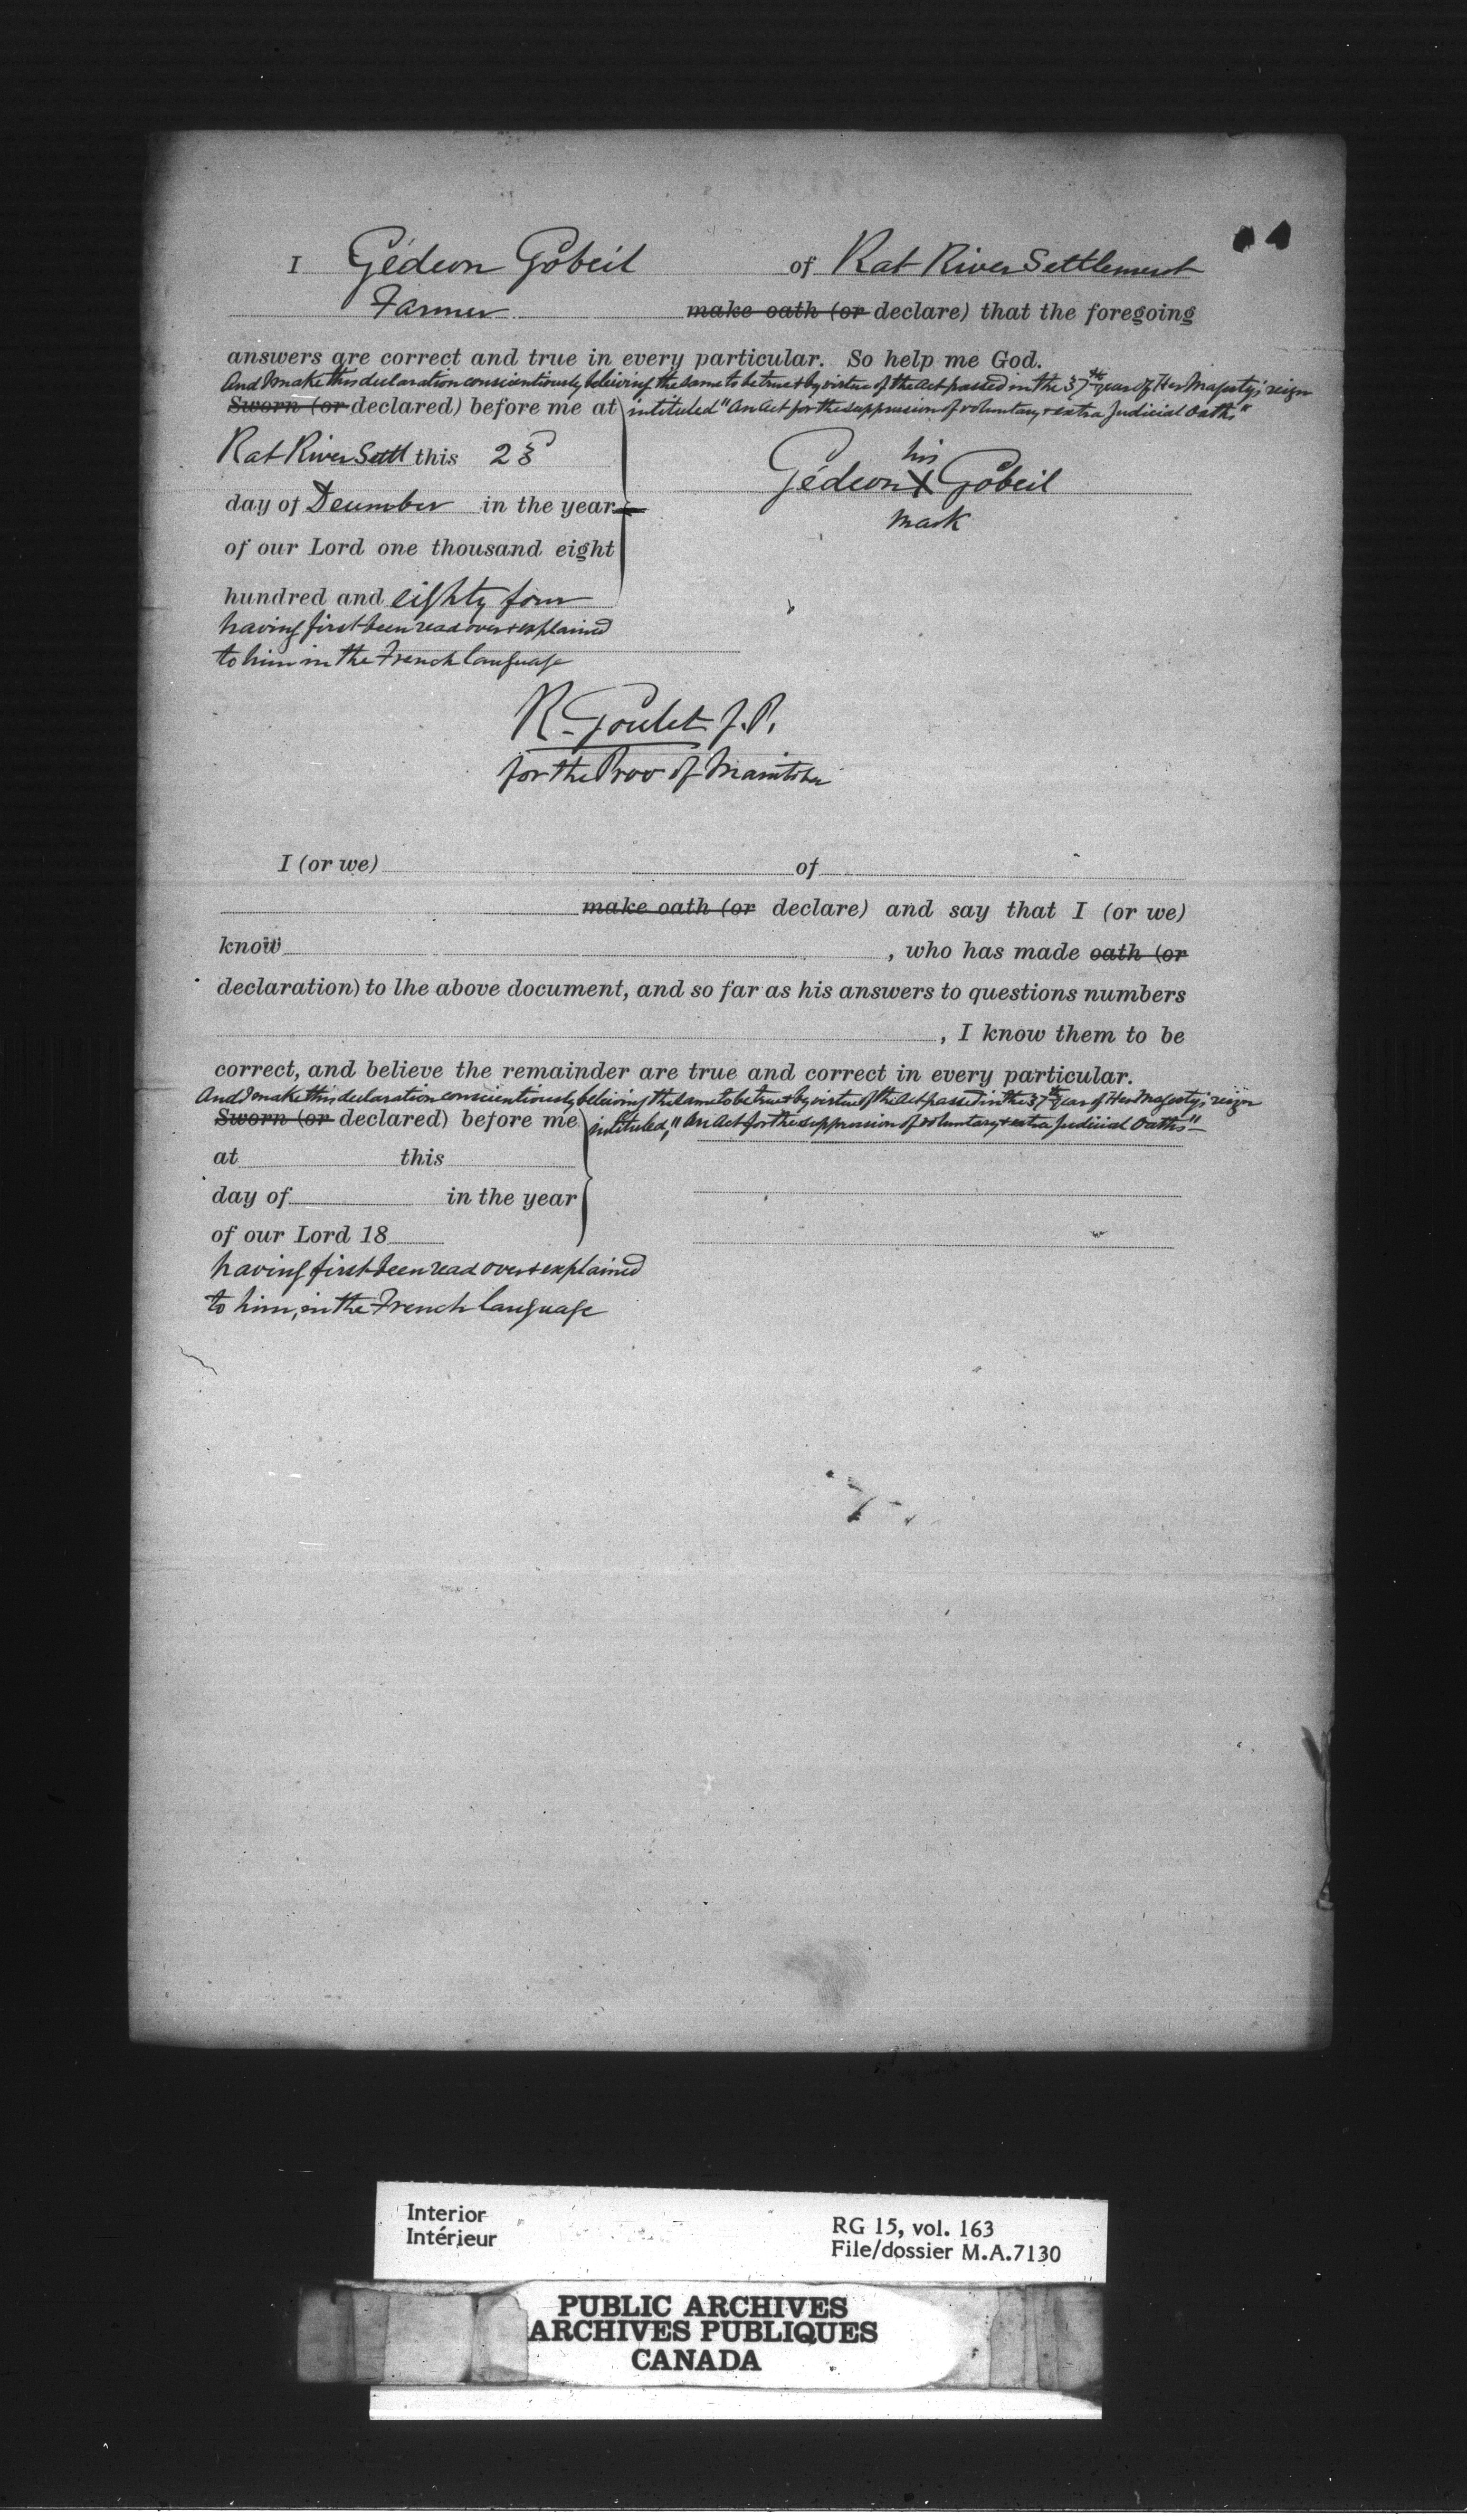 I Gédeon Gobeil of Rat River Settlement
Farmer make oath (or declare) that the foregoing
answers are correct and true in every particular. So help me God.
And I make this declaration conscientiously believing the same to be true & by virtue of the Act passed in the 37th year of Her Majesty's reign
Sworn (or declared) before me at intituled "An Act for the suppression of voluntary & extra Judicial Oaths"
Rat River Settl this 23
his
Gédeon X Gobeil
mark
day of December in the year
of our Lord one thousand eight
hundred and eighty four
having first been read over & explained
to him in the French language
R. Goulet J.P.
for the Prov of Manitoba
I (or we) of
make oath (or declare) and say that I (or we)
know , who has made oath (or
declaration) to lhe above document, and so far as his answers to questions numbers
, I know them to be
correct, and believe the remainder are true and correct in every particular.
And I make this declaration conscientiously believing the same to be true & by virtue of the Act passed in the 37th year of Her Majesty's reign
Sworn (or declared) before me intituled, "An Act for the suppression of voluntary & extra Judicial Oaths"
at this
day of in the year
of our Lord 18
having first been read over & explained
to him, in the French language
Interior
Intérieur
RG 15, vol. 163
File/dossier M.A.7130
PUBLIC ARCHIVES
ARCHIVES PUBLIQUES
CANADA